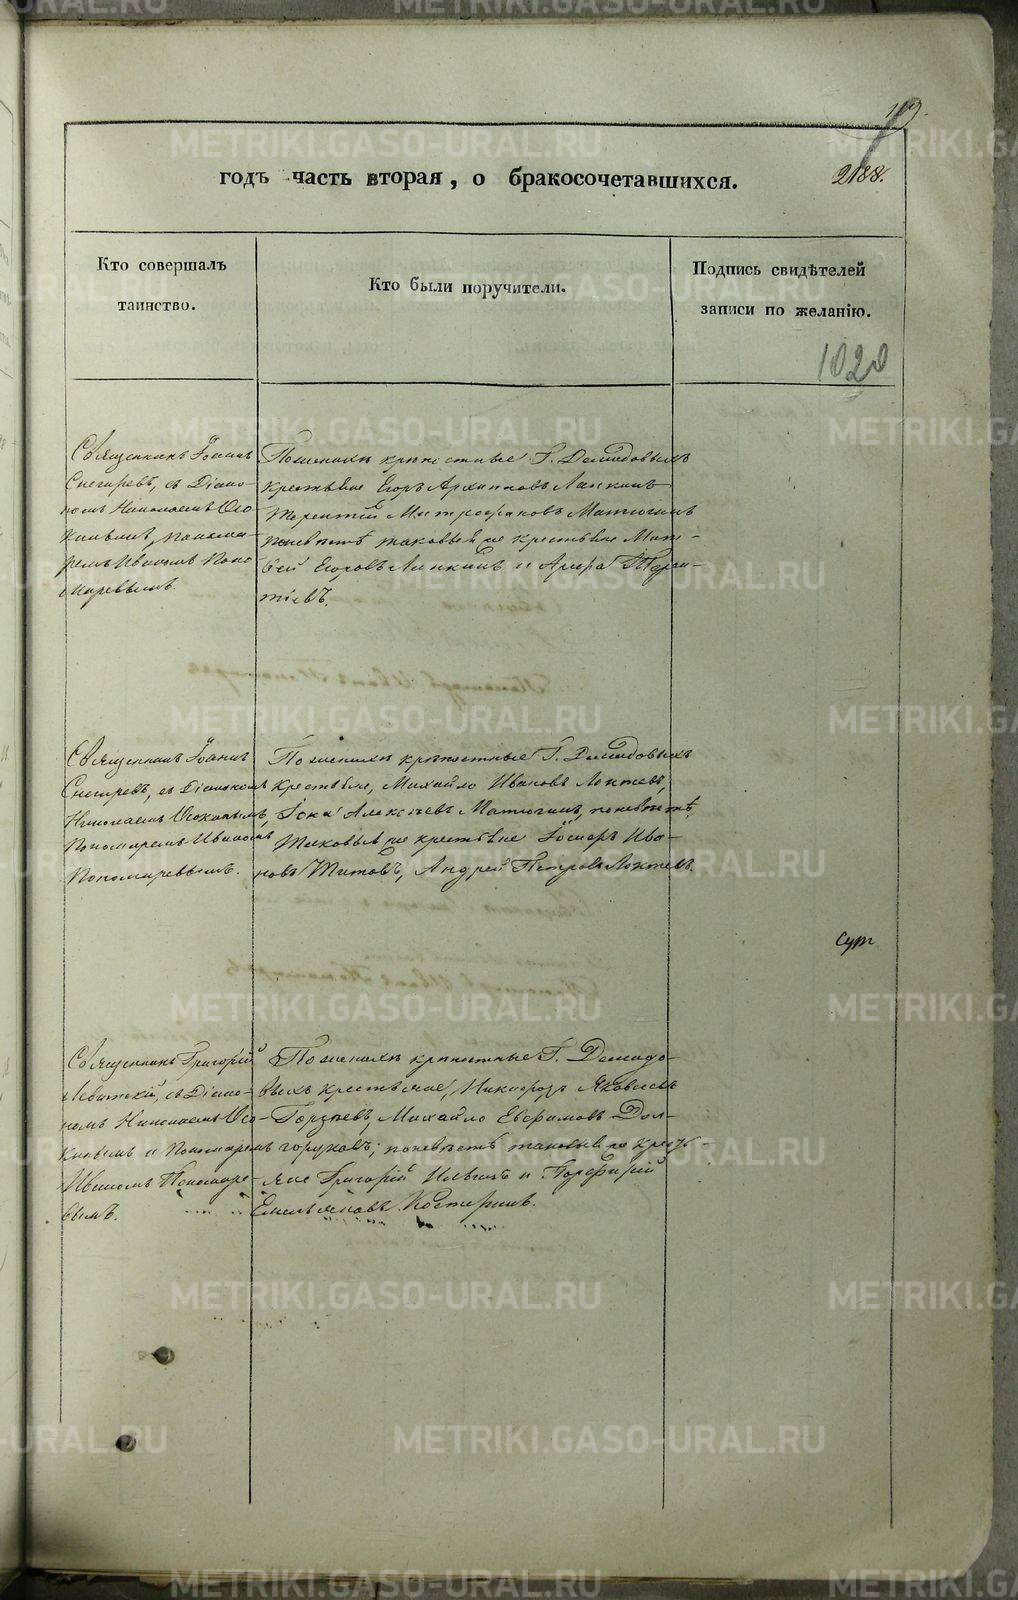 годъ часть вторая, о бракосочетавшихся.
2188.
Кто совершалъ
таинство.
Кто были поручители.
Подпись свидѣтелей
записи по желанію.
1020
Священникъ Іоаннъ
Снегиревъ, съ Діако-
номъ Николаемъ
и понома-
ремъ Иваномъ Поно-
маревымъ.
По женихѣ крѣпостные Г. Демидовыхъ
крестьяне Егоръ Архиповъ Лапкинъ
Терентій Митрофановъ Матюгинъ
по невѣстѣ таковые же крестьяне Мат-
вѣй Егоровъ Лапкинъ и Терен-
тіевъ.
Священникъ Іоаннъ
Снегиревъ, съ Діакономъ
Николаемъ
Пономаремъ Иваномъ
Пономаревымъ.
По женихѣ крѣпостные Г. Демидовыхъ
крестьяне, Михайло Ивановъ Локтевъ,
Іона Алексѣевъ Матюгинъ, по невѣстѣ,
таковые же крестьяне Ива-
новъ Титовъ, Андрей Петровъ Локтевъ.
Священникъ Григорій
Левитскій, съ Діако-
номъ Николаемъ
и Пономаремъ
Иваномъ Пономаре-
вымъ.
По женихѣ крѣпостные Г. Демидо-
выхъ крестьяне, Никифоръ Яковлевъ
Михайло Евфимовъ Дол-
горуковъ; по невѣстѣ таковые же крестья-
яне Григорій Ильинъ и Порфирій
Емельяновъ Костеринъ.
METRIKI.GASO-URAL.RU